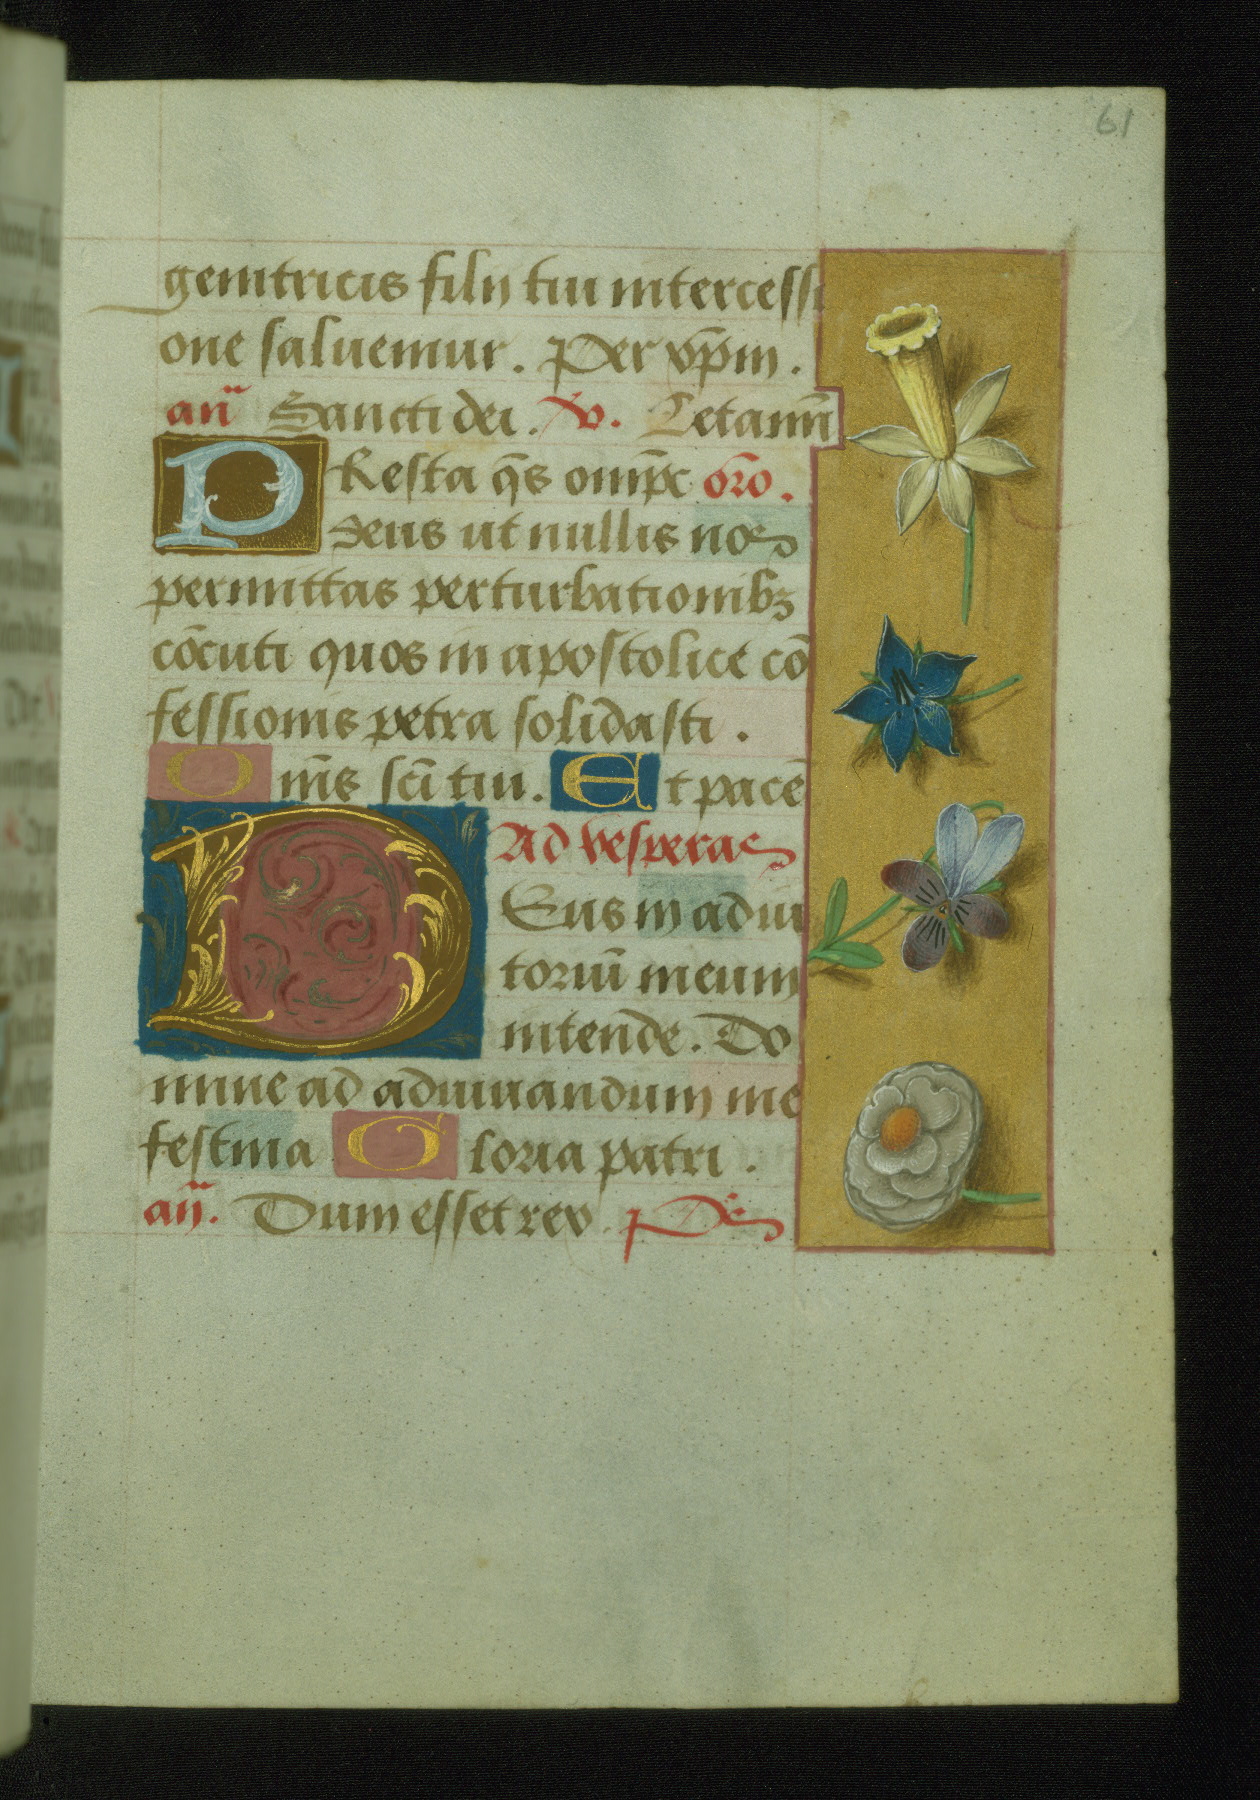 61
genitricis filij tui intercessi
one saluemur. Per xp̄m.
an̄ Sancti dei. v. Letamī
PResta q̄s omīpc oro.
Deus ut nullis nos
permittas perturbationibꝫ
cōcuti quos in apostolice cō
fessionis petra solidasti.
Om̄s sc̄i tui. Et pacē
Ad vesperas
DEus in adiu
toriū meum
intende. Do
mine ad adiuuandum me
festina Gloria patri.
an̄. Dum esset rex. Ps̄